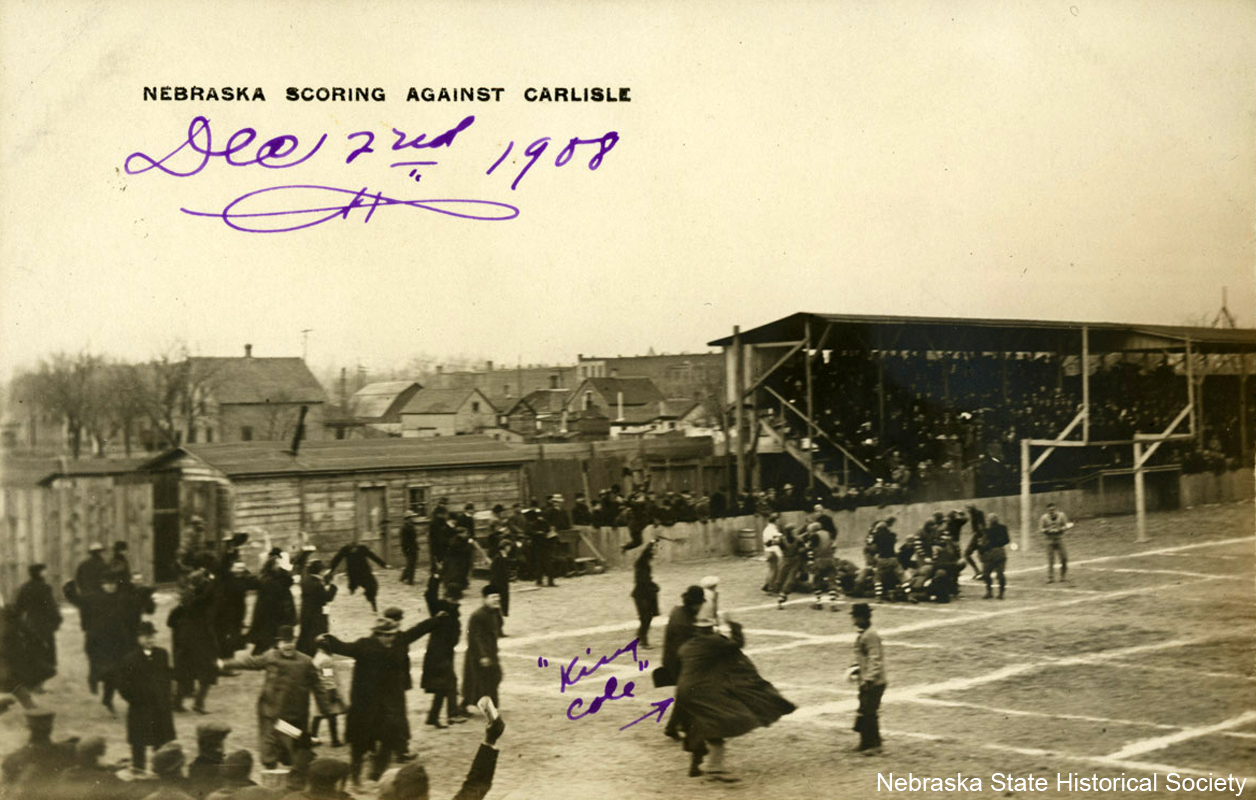 NEBRASKA SCORING AGAINST CARLISLE
Dec 2nd 1908
"King
Cole"
Nebraska State Historical Society